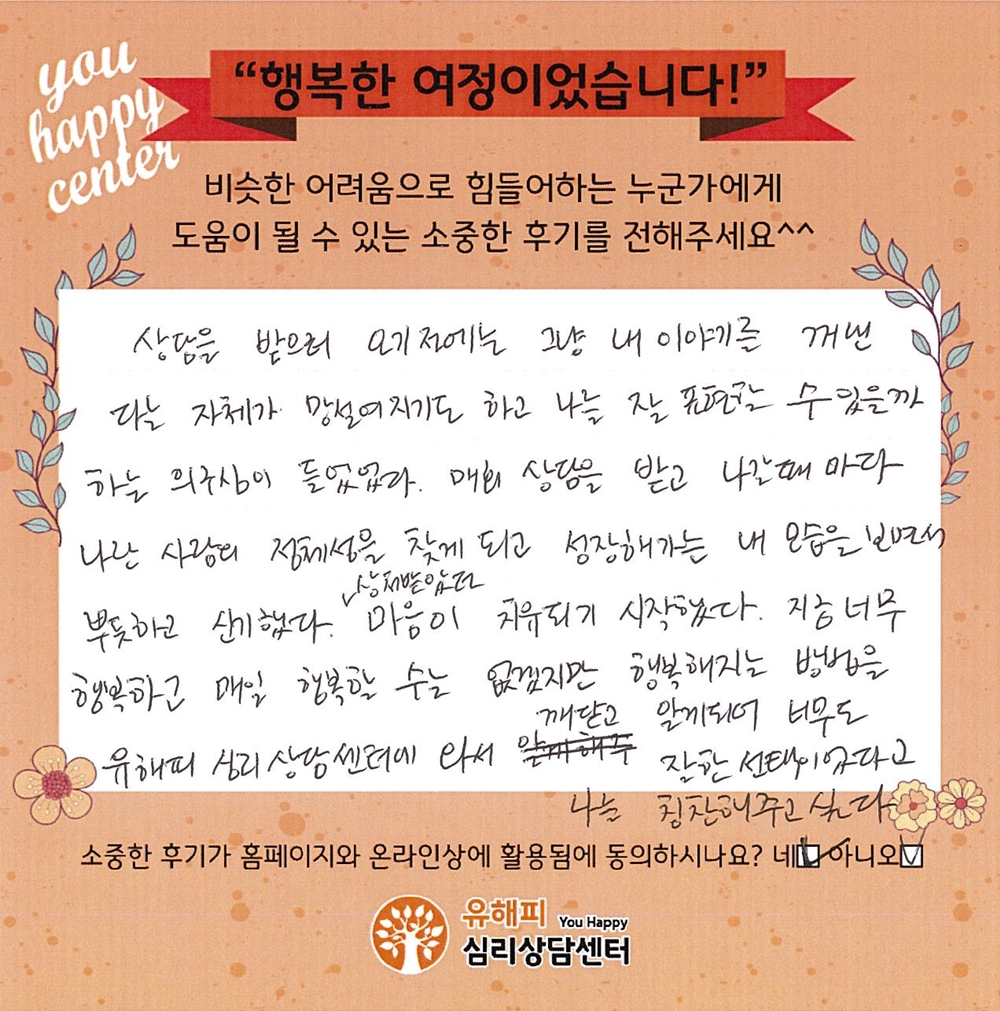 you
happy
center
“행복한 여정이었습니다!”
비슷한 어려움으로 힘들어하는 누군가에게
도움이 될 수 있는 소중한 후기를 전해주세요^^
상담을 받으러 오기 전에는 그냥 내 이야기를 꺼낸
다는 자체가 망설여지기도 하고 나를 잘 표현할 수 있을까
하는 의구심이 들었었다. 매회 상담을 받고 나갈때 마다
나란 사람의 정체성을 찾게 되고 성장해가는 내 모습을 보면서
뿌듯하고 신기했다. 상처받았던 마음이 치유되기 시작했다. 지금 너무
행복하고 매일 행복할 수는 없겠지만 행복해지는 방법을
깨닫고 알게되어 너무도
유해피 심리상담센터에 와서 잘한 선택이었다고
나를 칭찬해주고 싶다
소중한 후기가 홈페이지와 온라인상에 활용됨에 동의하시나요? 네 아니오
유해피 You Happy
심리상담센터